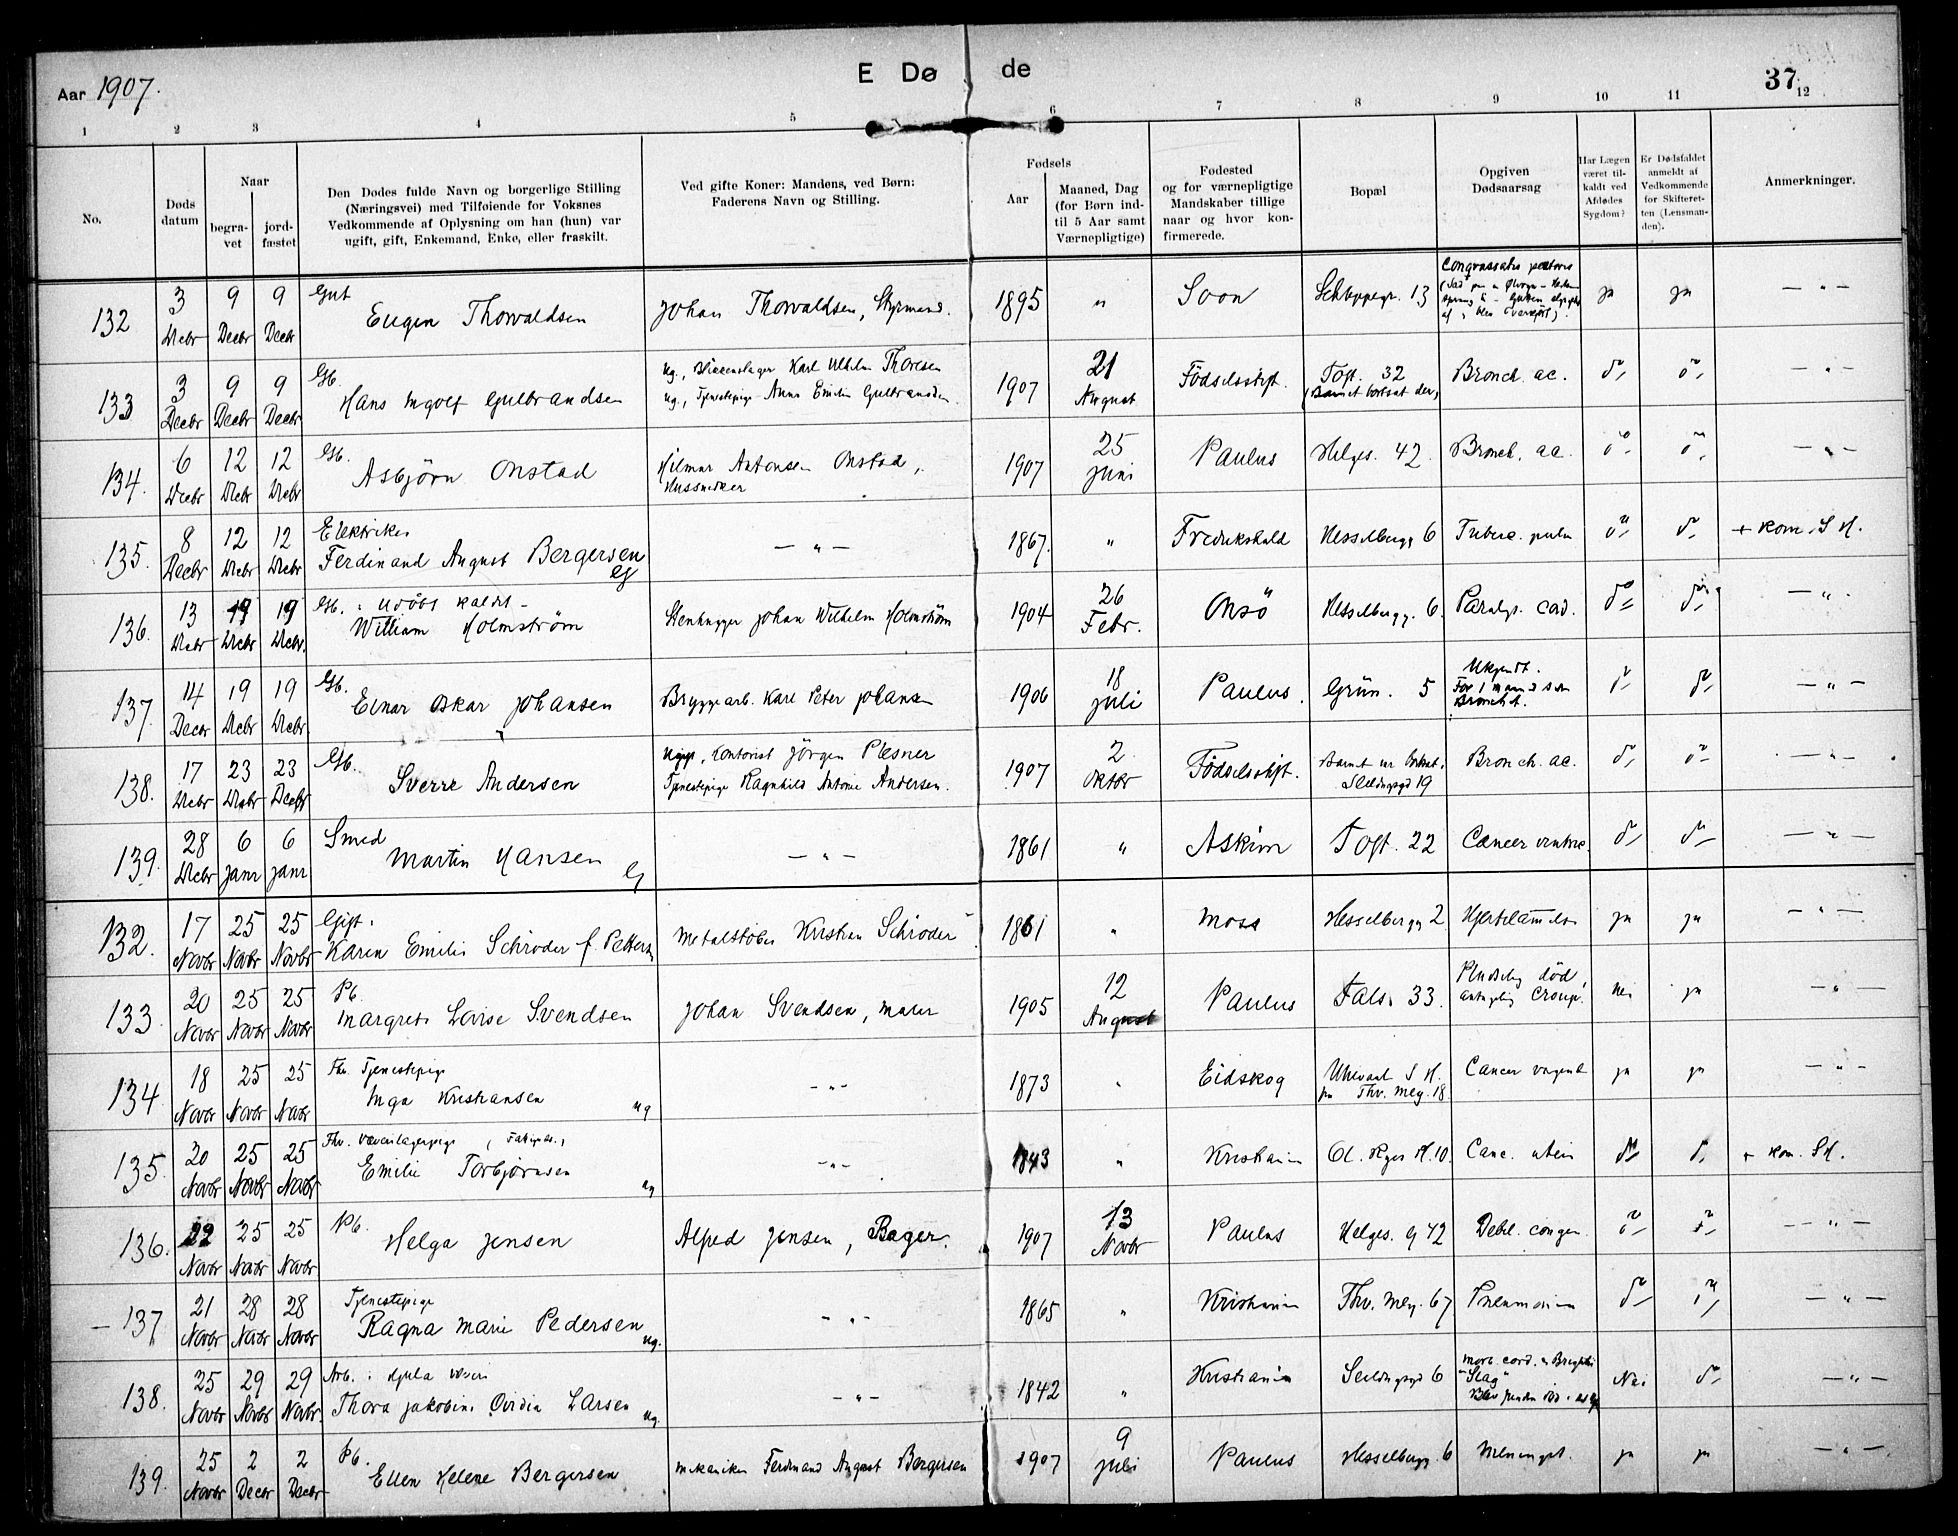 Aar 1907.
E Dø de
37
1 2 3 4 5 6 7 8 9 10 11 12
No.
Døds datum
Naar
begra-vet
jord-fæstet
Den Dødes fulde Navn og borgerlige Stilling
(Næringsvei) med Tilføiende for Voksnes
Vedkommende af Oplysning om han (hun) var
ugift, gift, Enkemand, Enke, eller fraskilt.
Ved gifte Koner: Mandens, ved Børn:
Faderens Navn og Stilling.
Fødsels
Aar
Maaned, Dag
(for Børn ind-
til 5 Aar samt
Værnepligtige)
Fødested
og for værnepligtige
Mandskaber tillige
naar og hvor kon-
firmerede.
Bopæl
Opgiven
Dødsaarsag
Har Lægen
været til-
kaldt ved
Afdødes
Sygdom?
Er Dødsfaldet
anmeldt af
Vedkommende
for Skifteret-
ten (Lensman-
den).
Anmerkninger.
132 3 Decbr 9 Decbr 9 Decbr Gut Eugen Thorvaldsen Johan Thorvaldsen, Styrmand. 1895 " Soon Schleppegr. 13 ja ja — " —
133 3 Decbr 9 Decbr 9 Decbr Gb. Hans Ingolf Gulbrandsen
ug., Blikkenslager Karl Vilhelm Thoresen
ug., Tjenestepige Anna Emilie Gulbrandsen.
1907 21 August Fødselsstift. Toft. 32 (Barnet bortsat der) Bronch. ac. do do — " —
134. 6 Decbr 12 Decbr 12 Decbr Gb. Asbjørn Onstad Hilmar Antonsen Onstad, Hussnedker 1907 25 Juni Paulus Helges. 42. Bronch. ac. do do — " —
135. 8 Decbr 12 Decbr 12 Decbr Elektriker
Ferdinand August Bergersen g — " — 1867. " Fredrikshald Hesselbergg 6 Tuberc. pulm do do + kom. S H.
136. 13 Decbr 19 Decbr 19 Decbr. Gb. : udøbt kaldt -
William Holmström Stenhugger Johan Wilhelm Holmström 1904 26 Febr. Onsö Hesselbergg. 6. Paralys. cord. do do — " —
137. 14 Decbr 19 Decbr 19 Decbr Gb. Einar Oskar Johansen Bryggearb. Karl Peter Johansen 1906 18 Juli Paulus. Grün. 5 Ukjendt.
For 1 maaned siden
Bronchit. do do — " —
138. 17 Decbr 23 Decbr 23 Decbr Gb. Sverre Andersen
Ugift, Kontorist Jörgen Plesner
Tjenestepige Ragnhild Antonie Andersen.
1907 2 Oktbr Fødselsstift. Barnet var bortsat. Seildugsgd 19 Bronch. ac. do do — " —
139. 28 Decbr 6 Janr 6 Janr Smed
Martin Hansen g — " — 1861 " Askim Toft. 22 Cancer ventric. do do — " —
132. 17 Novbr 25 Novbr 25 Novbr Gift.
Karen Emilie Schrøder f. Pettersen Metalstøber Kristian Schrøder 1861 " Moss Hesselbergg 2 Hjertelammelse ja ja — " —
133 20 Novbr 25 Novbr 25 Novbr Pb.
Margrete Lovise Svendsen Johan Svendsen, maler 1905 12 August Paulus Fals. 33. Pludselig död,
antagelig Croup. Nei ja — " —
134 18 Novbr 25 Novbr 25 Novbr Fhv. Tjenestepige
Inga Kristiansen ug — " — 1873 " Eidskog Ullevaal S H.
fra Thv. Mey. 18. Cancer vaginæ ja ja — " —
135. 20 Novbr 25 Novbr 25 Novbr Fhv.
Emilie Torbjørnsen ug — " — 1843 " Kristiania Ol. Ryes Pl. 10. Canc. uteri do do + kom. SH.
136. 22 Novbr 25 Novbr 25 Novbr Pb. Helga Jensen Alfred Jensen, Bager. 1907 13 Novbr Paulus Helges. g 42 Debil. congen. do do — " —
137 21 Novbr 28 Novbr 28 Novbr Tjenestepige
Ragna Marie Pedersen ug. — " — 1865 " Kristiania Thv. Mey. 67 Pneumonia do do — " —
138. 25 Novbr 29 Novbr 29 Novbr. Arb. i Hjula Væveri
Thora Jakobine Ovidia Larsen ug. — " — 1842 " Kristiania Seildugsgd 6 Morb. cord. "Slag" Nei do — " —
139. 25 Novbr 2 Decbr 2 Decbr Pb.
Ellen Helene Bergersen Mekaniker Ferdinand August Bergersen 1907 9 Juli Paulus Hesselbergg. 6 Meningit. ja ja — " —